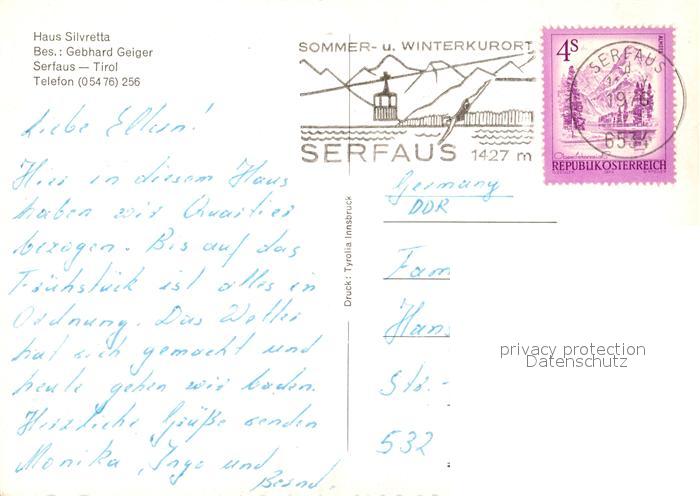 Haus Silvretta
Bes.: Gebhard Geiger
Serfaus — Tirol
Telefon (05476) 256
SOMMER- u. WINTERKURORT
SERFAUS 1427 m
4S
REPUBLIK ÖSTERREICH
SERFAUS
6534
Liebe Eltern!
Hier in diesem Haus
haben wir Quartier
bezogen. Bis auf das
Frühstück ist alles in
Ordnung. Das Wetter
hat sich gemacht und
heute gehen wir baden.
Herzliche Grüße senden
Monika, Ingo und
Bernd
Druck: Tyrolia Innsbruck
Germany
DDR
Fam
Hans
Str.-
532
privacy protection
Datenschutz